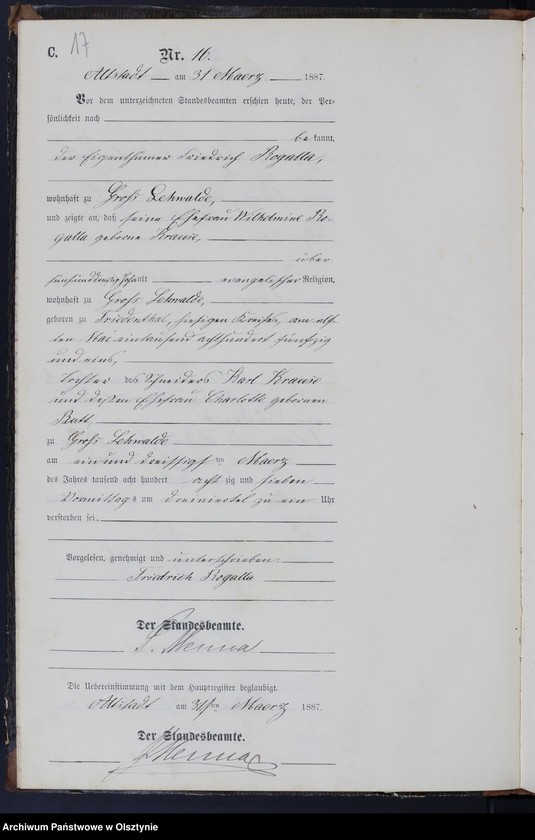 C. 17
Nr. 16.
Altstadt am 31 Maerz 1887.
Vor dem unterzeichneten Standesbeamten erschien heute, der Per-
sönlichkeit nach
bekannt,
der Eigenthümer Friedrich Rogalla,
wohnhaft zu Groß Lehwalde,
und zeigte an, daß seine Ehefrau Wilhelmine Ro-
galla geborne Krause,
über
fünfunddreißig Jahr alt evangelischer Religion,
wohnhaft zu Groß Lehwalde,
geboren zu Friedenthal, hiesigen Kreises, am elf-
ten Mai eintausend achthundert fünfzig
und eins,
Tochter des Schneiders Karl Krause
und dessen Ehefrau Charlotte gebornen
zu Groß Lehwalde
am ein und dreissigsten Maerz
des Jahres tausend acht hundert achtzig und sieben
Vormittags um dreiviertel zu ein Uhr
verstorben sei.
Vorgelesen, genehmigt und unterschrieben
Friedrich Rogalla
Der Standesbeamte.
Menna
Die Uebereinstimmung mit dem Hauptregister beglaubigt.
Altstadt am 31sten Maerz 1887.
Der Standesbeamte.
Menna
Archiwum Państwowe w Olsztynie